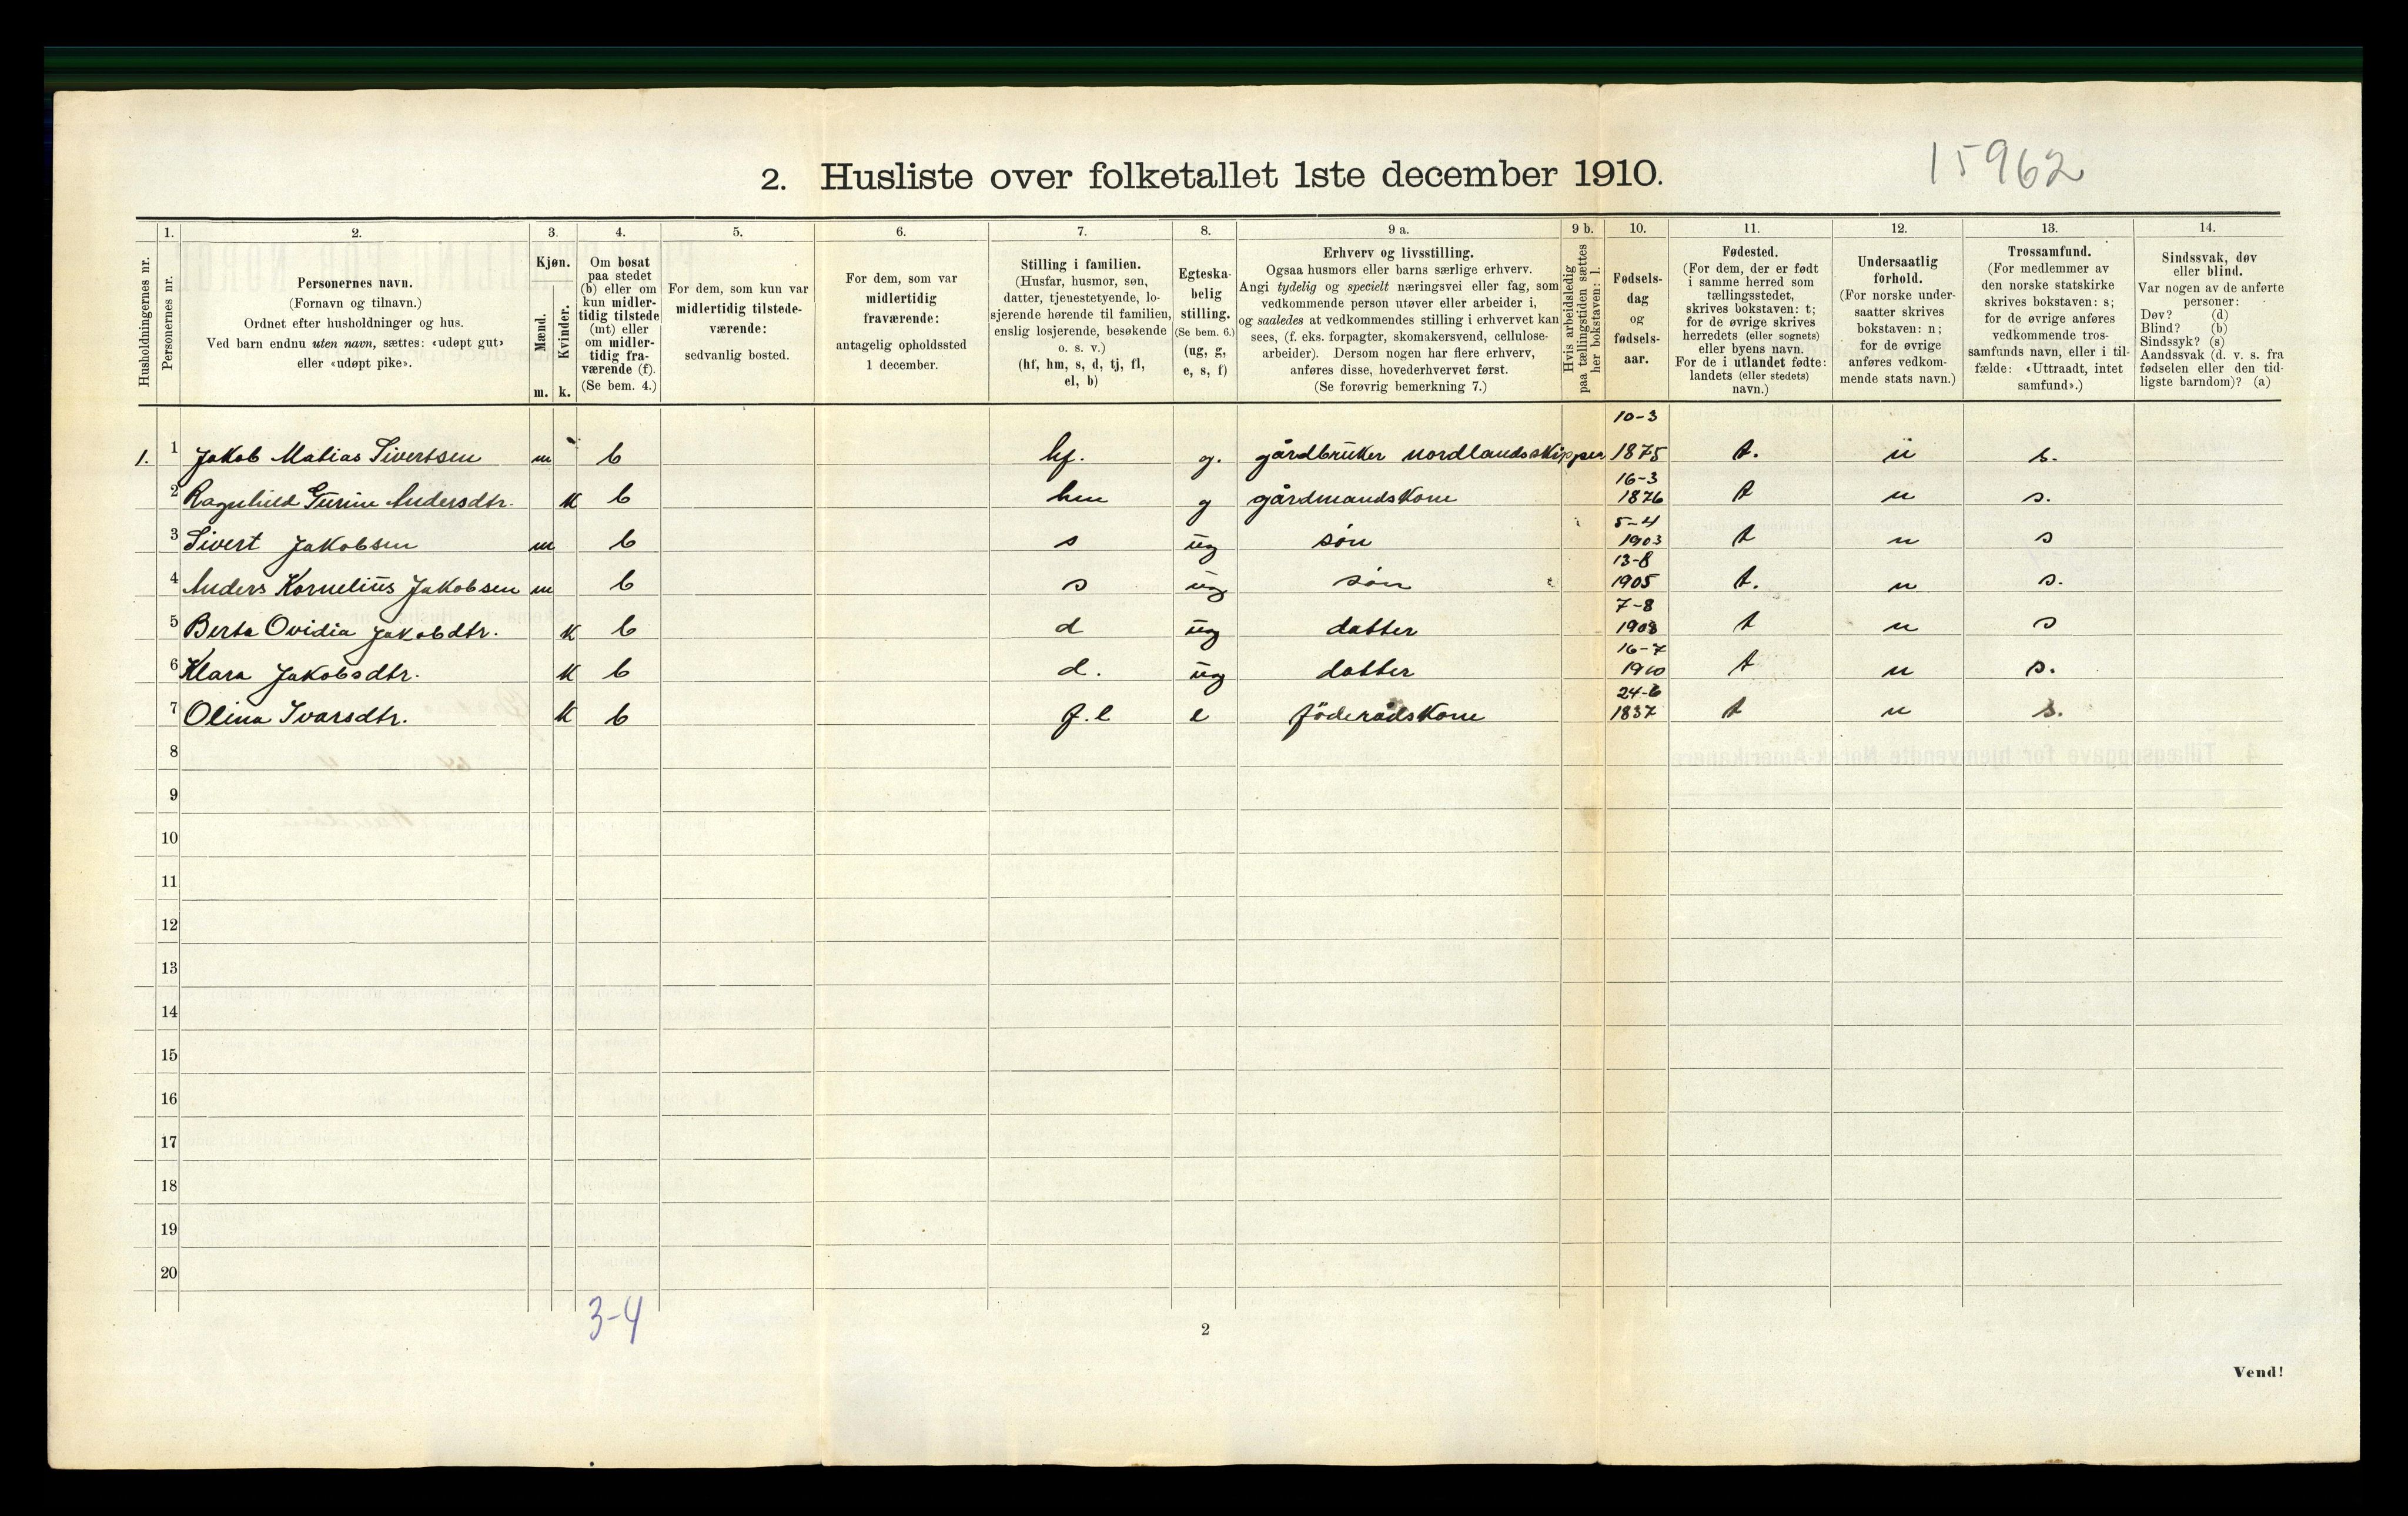 15962
2. Husliste over folketallet 1ste december 1910.
Husholdningernes nr.
1.
Personernes nr.
2.
Personernes navn.
(Fornavn og tilnavn.)
Ordnet efter husholdninger og hus.
Ved barn endnu uten navn, sættes: «udøpt gut»
eller «udøpt pike».
3.
Kjøn.
Mænd.
Kvinder.
m. k.
4.
Om bosat
paa stedet
(b) eller om
kun midler-
tidig tilstede
(mt) eller
om midler-
tidig fra-
værende (f).
(Se bem. 4.)
5.
For dem, som kun var
midlertidig tilstede-
værende:
sedvanlig bosted.
6.
For dem, som var
midlertidig
fraværende:
antagelig opholdssted
1 december.
7.
Stilling i familien.
(Husfar, husmor, søn,
datter, tjenestetyende, lo-
sjerende hørende til familien,
enslig losjerende, besøkende
o. s. v.)
(hf, hm, s, d, tj, fl,
el, b)
8.
Egteska-
belig
stilling.
(Se bem. 6.)
(ug, g,
e, s, f)
9 a.
Erhverv og livsstilling.
Ogsaa husmors eller barns særlige erhverv.
Angi tydelig og specielt næringsvei eller fag, som
vedkommende person utøver eller arbeider i,
og saaledes at vedkommendes stilling i erhvervet kan
sees, (f. eks. forpagter, skomakersvend, cellulose-
arbeider). Dersom nogen har flere erhverv,
anføres disse, hovederhvervet først.
(Se forøvrig bemerkning 7.)
9 b.
Hvis arbeidsledig
paa tællingstiden sættes
her bokstaven: l.
10.
Fødsels-
dag
og
fødsels-
aar.
11.
Fødested.
(For dem, der er født
i samme herred som
tællingsstedet,
skrives bokstaven: t;
for de øvrige skrives
herredets (eller sognets)
eller byens navn.
For de i utlandet fødte:
landets (eller stedets)
navn.)
12.
Undersaatlig
forhold.
(For norske under-
saatter skrives
bokstaven: n;
for de øvrige
anføres vedkom-
mende stats navn.)
13.
Trossamfund.
(For medlemmer av
den norske statskirke
skrives bokstaven: s;
for de øvrige anføres
vedkommende tros-
samfunds navn, eller i til-
fælde: «Uttraadt, intet
samfund».)
14.
Sindssvak, døv
eller blind.
Var nogen av de anførte
personer:
Døv? (d)
Blind? (b)
Sindssyk? (s)
Aandssvak (d. v. s. fra
fødselen eller den tid-
ligste barndom)? (a)
10-3
1. 1 Jakob Matias Sivertsen m b hf. g. gårdbruker nordlandsskipper 1875 t. n s.
16-3
2 Ragnhild Gurine Andersdtr. k b hm g gårdmandskone 1876 t n s.
5-4
3 Sivert Jakobsen m b s ug søn 1903 t n s
13-8
4 Anders Kornelius Jakobsen m b s ug søn 1905 t. n s.
7-8
5 Berta Ovidia Jakobdtr. k b d ug datter 1908 t n s
16-7
6 Klara Jakobsdtr. k b d. ug datter 1910 t n s.
24-6
7 Olina Ivarsdtr. k b f.l e föderådskone 1837 t n s.
8
9
10
11
12
13
14
15
16
17
18
19
20
3-4
2
Vend!